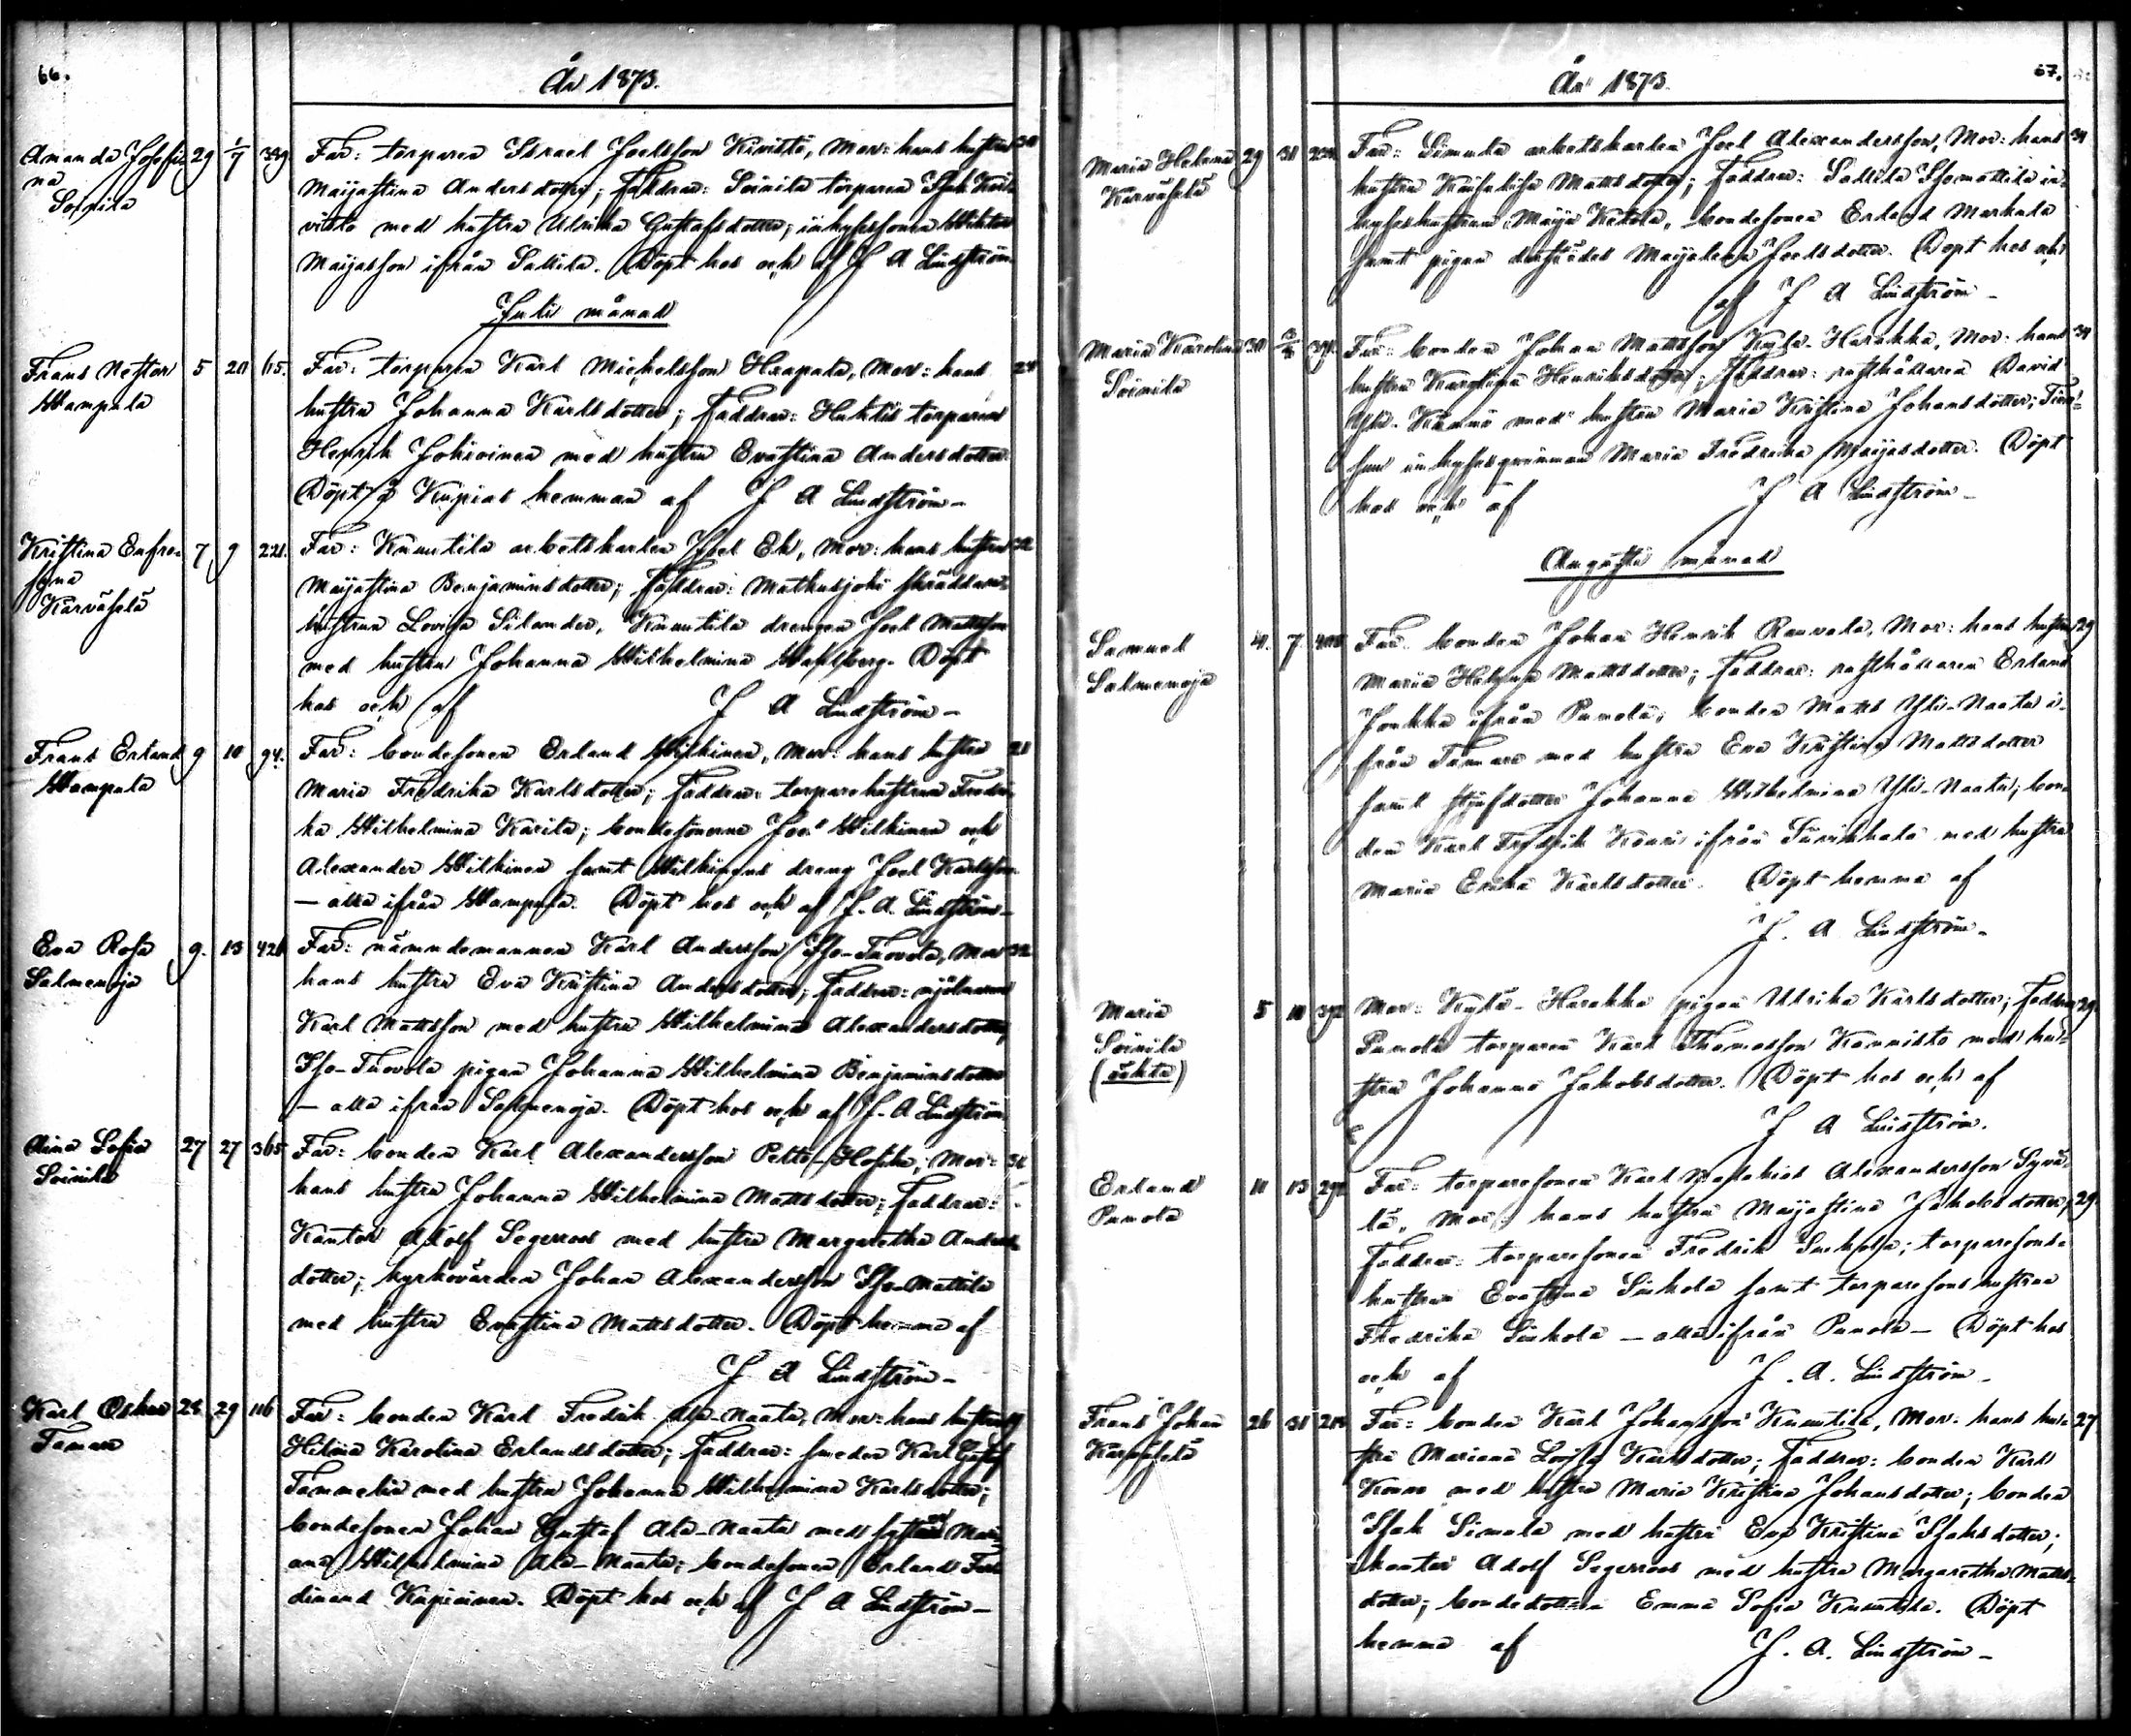 66.
År 1873.
Amanda Josefi- 29 1/7 389 Far: torparen Israel Joelsson Kivistö, Mor: hans hustru 30
na
Soinila
Maijastina Andersdotter; Faddrar: Soinila torparen Isak Kei-
visto med hustru Ulrika Gustafsdotter; inhysessonen Wiktor
Maijasson ifrån Sallila. Döpt hos och af J A Lindström
Juli månad
Frans Nestor 5 20 65. Far: torparen Karl Mickelsson Haapala, Mor: hans 24
Wampula
hustru Johanna Karlsdotter; Faddrar: Huktis torparen
Henrik Johioinen med hustru Evastina Andersdotter
Döpt å Kupias hemman af J A Lindström-
Kristina Eufro- 7 9 221. Far: Knuutila arbetskarlen Joel Ek, Mor: hans hustru 32
syna
Kärväselä
Maijastina Benjaminsdotter; Faddrar: Matkusjoki skräddare-
hustrun Lovisa Silander, Knuutila drengen Joel Mattsson
med hustru Johanna Wilhelmina Wahlberg. Döpt
hos och af J A Lindström-
Frans Erland 9 10 94. Far: bondesonen Erland Wilkinen, Mor: hans hustru 21
Wampula
Maria Fredrika Karlsdotter; Faddrar: torparehustrun Fredri-
ka Wilhelmina Karila; bondesönerna Joel Wilkinen och
Alexander Wilkinen samt Wilkinens dreng Joel Karlsson
— alla ifrån Wampula. Döpt hos och af J. A. Lindström-
Eva Rosa 9. 13 426 Far: nämndemannen Karl Andersson Iso-Tuovola, Mor 32
Salmenoja
hans hustru Eva Kristina Andersdotter; Faddrar: mjölnaren
Karl Mattsson med hustru Wilhelmina Alexandersdotter,
Iso-Tuovola pigan Johanna Wilhelmina Benjaminsdotter
— alla ifrån Salmenoja. Döpt hos och af J. A Lindström
Aina Sofia 27 27 365 Far: bonden Karl Alexandersson Peltö-Hosika; Mor:
Soinila
hans hustru Johanna Wilhelmina Mattsdotter; Faddrar:
Kantor Adolf Segerroos med hustru Margaretha Anders-
dotter; kyrkovärden Johan Alexandersson Iso-Mattila
med hustru Evastina Mattsdotter. Döpt hemma af
J A Lindström-
Karl Oskar 28 29 116 Far: bonden Karl Fredrik Ala-Naata, Mor: hans hustru
Tamare
Hilma Karolina Erlandsdotter; Faddrar: smeden Karl Gustaf
Tammelin med hustru Johanna Wilhelmina Karlsdotter;
bondesonen Johan Gustaf Ala-Naata med systern Mari-
ana Wilhelmina Ala-Naata; bondesonen Erland Ferd
dinand Kupiainen. Döpt hos och af J A Lindström-
67.
År 1873.
Maria Helena 29 31 Far: Simula arbetskarlen Joel Alexandersson, Mor: hans 31
Kärväselä
hustru Kaisalisa Mattsdotter; Faddrar: Sallila Isomattila in-
hyseshustrun Maija Ketola, bondesonen Erland Markula
samt pigan dersädes Maijalena Joelsdotter. Döpt hos och
af J A Lindström-
Maria Karolina 30 2/8 391. Far: bonden Johan Mattsson Kylä-Harakka, Mor: hans 31
Soinila
hustru Karolina Henriksdotter; Faddrar: rusthållaren David
Yli-Kännö med hustru Maria Kristina Johansdotter;
inhysesqvinnan Maria Fredrika Maijasdotter. Döpt
hos och af J A Lindström-
Augusti månad
Samuel 4. 7 Far: bonden Johan Henrik Rauvola, Mor: hans hustru 29
Salmenoja
Maria Helena Mattsdotter; Faddrar: rusthållaren Erland
Jonkka ifrån Punola; bonden Matts Yli-Naata i-
från Tamare med hustru Eva Kristina Mattsdotter
samt styfdotter Johanna Wilhelmina Yli-Naata; bon-
den Karl Fredrik Kouvi ifrån Suvikkala med hustru
Maria Erika Karlsdotter. Döpt hemma af
J. A Lindström-
Maria 5 10 392 Mor: Kylä-Harakka pigan Ulrika Karlsdotter; Faddrar 29.
Soinila
(oäkta)
Punola torparen Karl Thomasson Kannisto med hu-
stru Johanna Jakobsdotter. Döpt hos och af
J A Lindström.
Erland 11 13 Far: torparesonen Karl Malakias Alexandersson Syvä-
Punola
lä, Mor: hans hustru Maijastina Jakobsdotter; 29.
Faddrar: torparesonen Fredrik Sinkola; torparesons-
hustrun Evastina Sinkola samt torparesonshustrun
Fredrika Sinkola — alla ifrån Punola — Döpt hos
och af J. A. Lindström-
Frans Johan 26 31 Far: bonden Karl Johansson Knuutila, Mor: hans hu- 27
Kärväselä
stru Mariana Lovisa Karlsdotter; Faddrar: bonden Karl
Kouvo med hustru Maria Kristina Johansdotter; bonden
Isak Simola med hustru Eva Kristina Isaksdotter;
kantor Adolf Segerroos med hustru Margaretha Matts-
dotter; bondedottern Emma Sofia Knuutila. Döpt
hemma af J. A. Lindström-